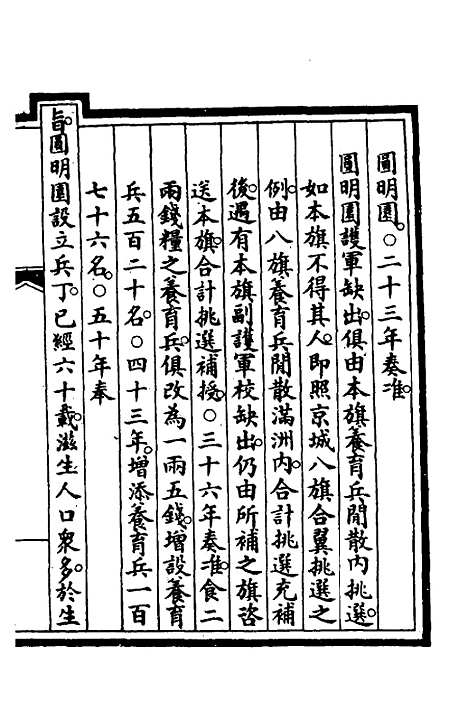 圓明園。○二十三年奏准。
圓明園護軍缺出。俱由本旗養育兵閒散內挑選。
如本旗不得其人。即照京城八旗合翼挑選之
例。由八旗養育兵閒散滿洲內。合計挑選充補
後。遇有本旗副護軍校缺出。仍由所補之旗咨
送本旗。合計挑選補授。○三十六年奏准。食二
兩錢糧之養育兵。俱改為一兩五錢。增設養育
兵五百二十名。○四十三年。增添養育兵一百
七十六名。○五十年奉
旨。圓明園設立兵丁。已經六十載。滋生人口眾多。於生